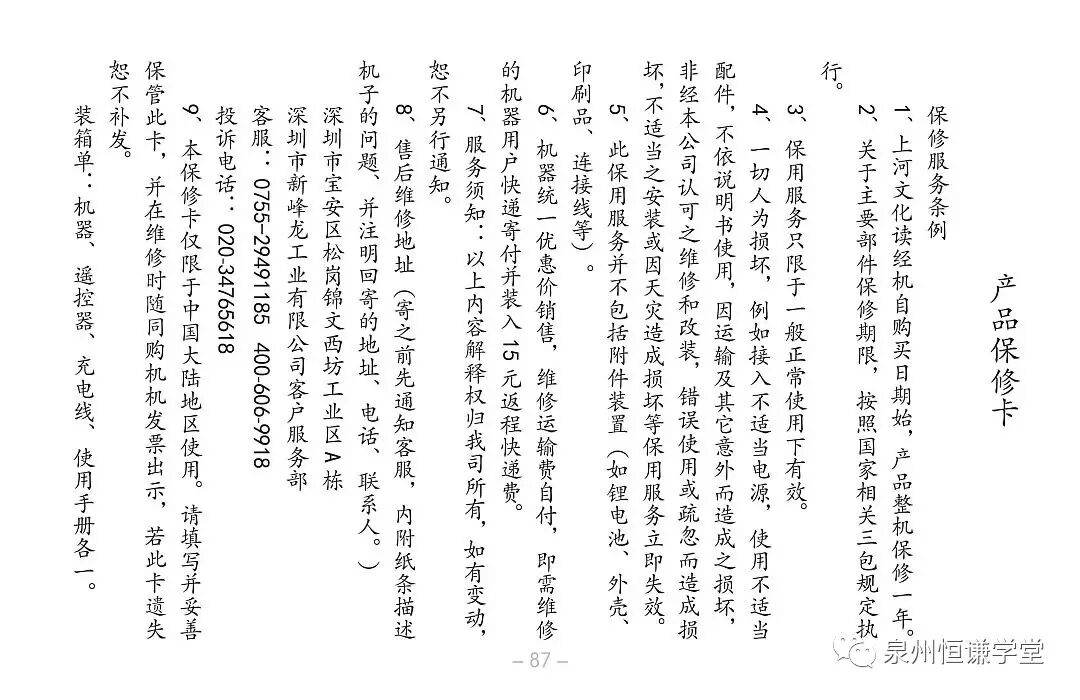 产品保修卡
保修服务条例
1、上河文化读经机自购买日期始，产品整机保修一年。
2、关于主要部件保修期限，按照国家相关三包规定执
行。
3、保用服务只限于一般正常使用下有效。
4、一切人为损坏，例如接入不适当电源，使用不适当
配件，不依说明书使用，因运输及其它意外而造成之损坏，
非经本公司认可之维修和改装，错误使用或疏忽而造成损
坏，不适当之安装或因天灾造成损坏等保用服务立即失效。
5、此保用服务并不包括附件装置（如锂电池、外壳、
印刷品、连接线等）。
6、机器统一优惠价销售，维修运输费自付，即需维修
的机器用户快递寄付并装入15元返程快递费。
7、服务须知：以上内容解释权归我司所有，如有变动，
恕不另行通知。
8、售后维修地址（寄之前先通知客服，内附纸条描述
机子的问题、并注明回寄的地址、电话、联系人。）
深圳市宝安区松岗锦文西坊工业区A栋
深圳市新峰龙工业有限公司客户服务部
客服：0755-29491185 400-606-9918
投诉电话：020-34765618
9、本保修卡仅限于中国大陆地区使用。请填写并妥善
保管此卡，并在维修时随同购机机发票出示，若此卡遗失
恕不补发。
装箱单：机器、遥控器、充电线、使用手册各一。
– 87 –
泉州恒谦学堂